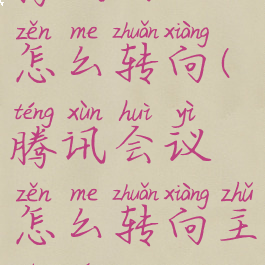 zěn me zhuǎn xiàng
怎么转向(
téng xùn huì yì
腾讯会议
zěn me zhuǎn xiàng zhǔ
怎么转向主